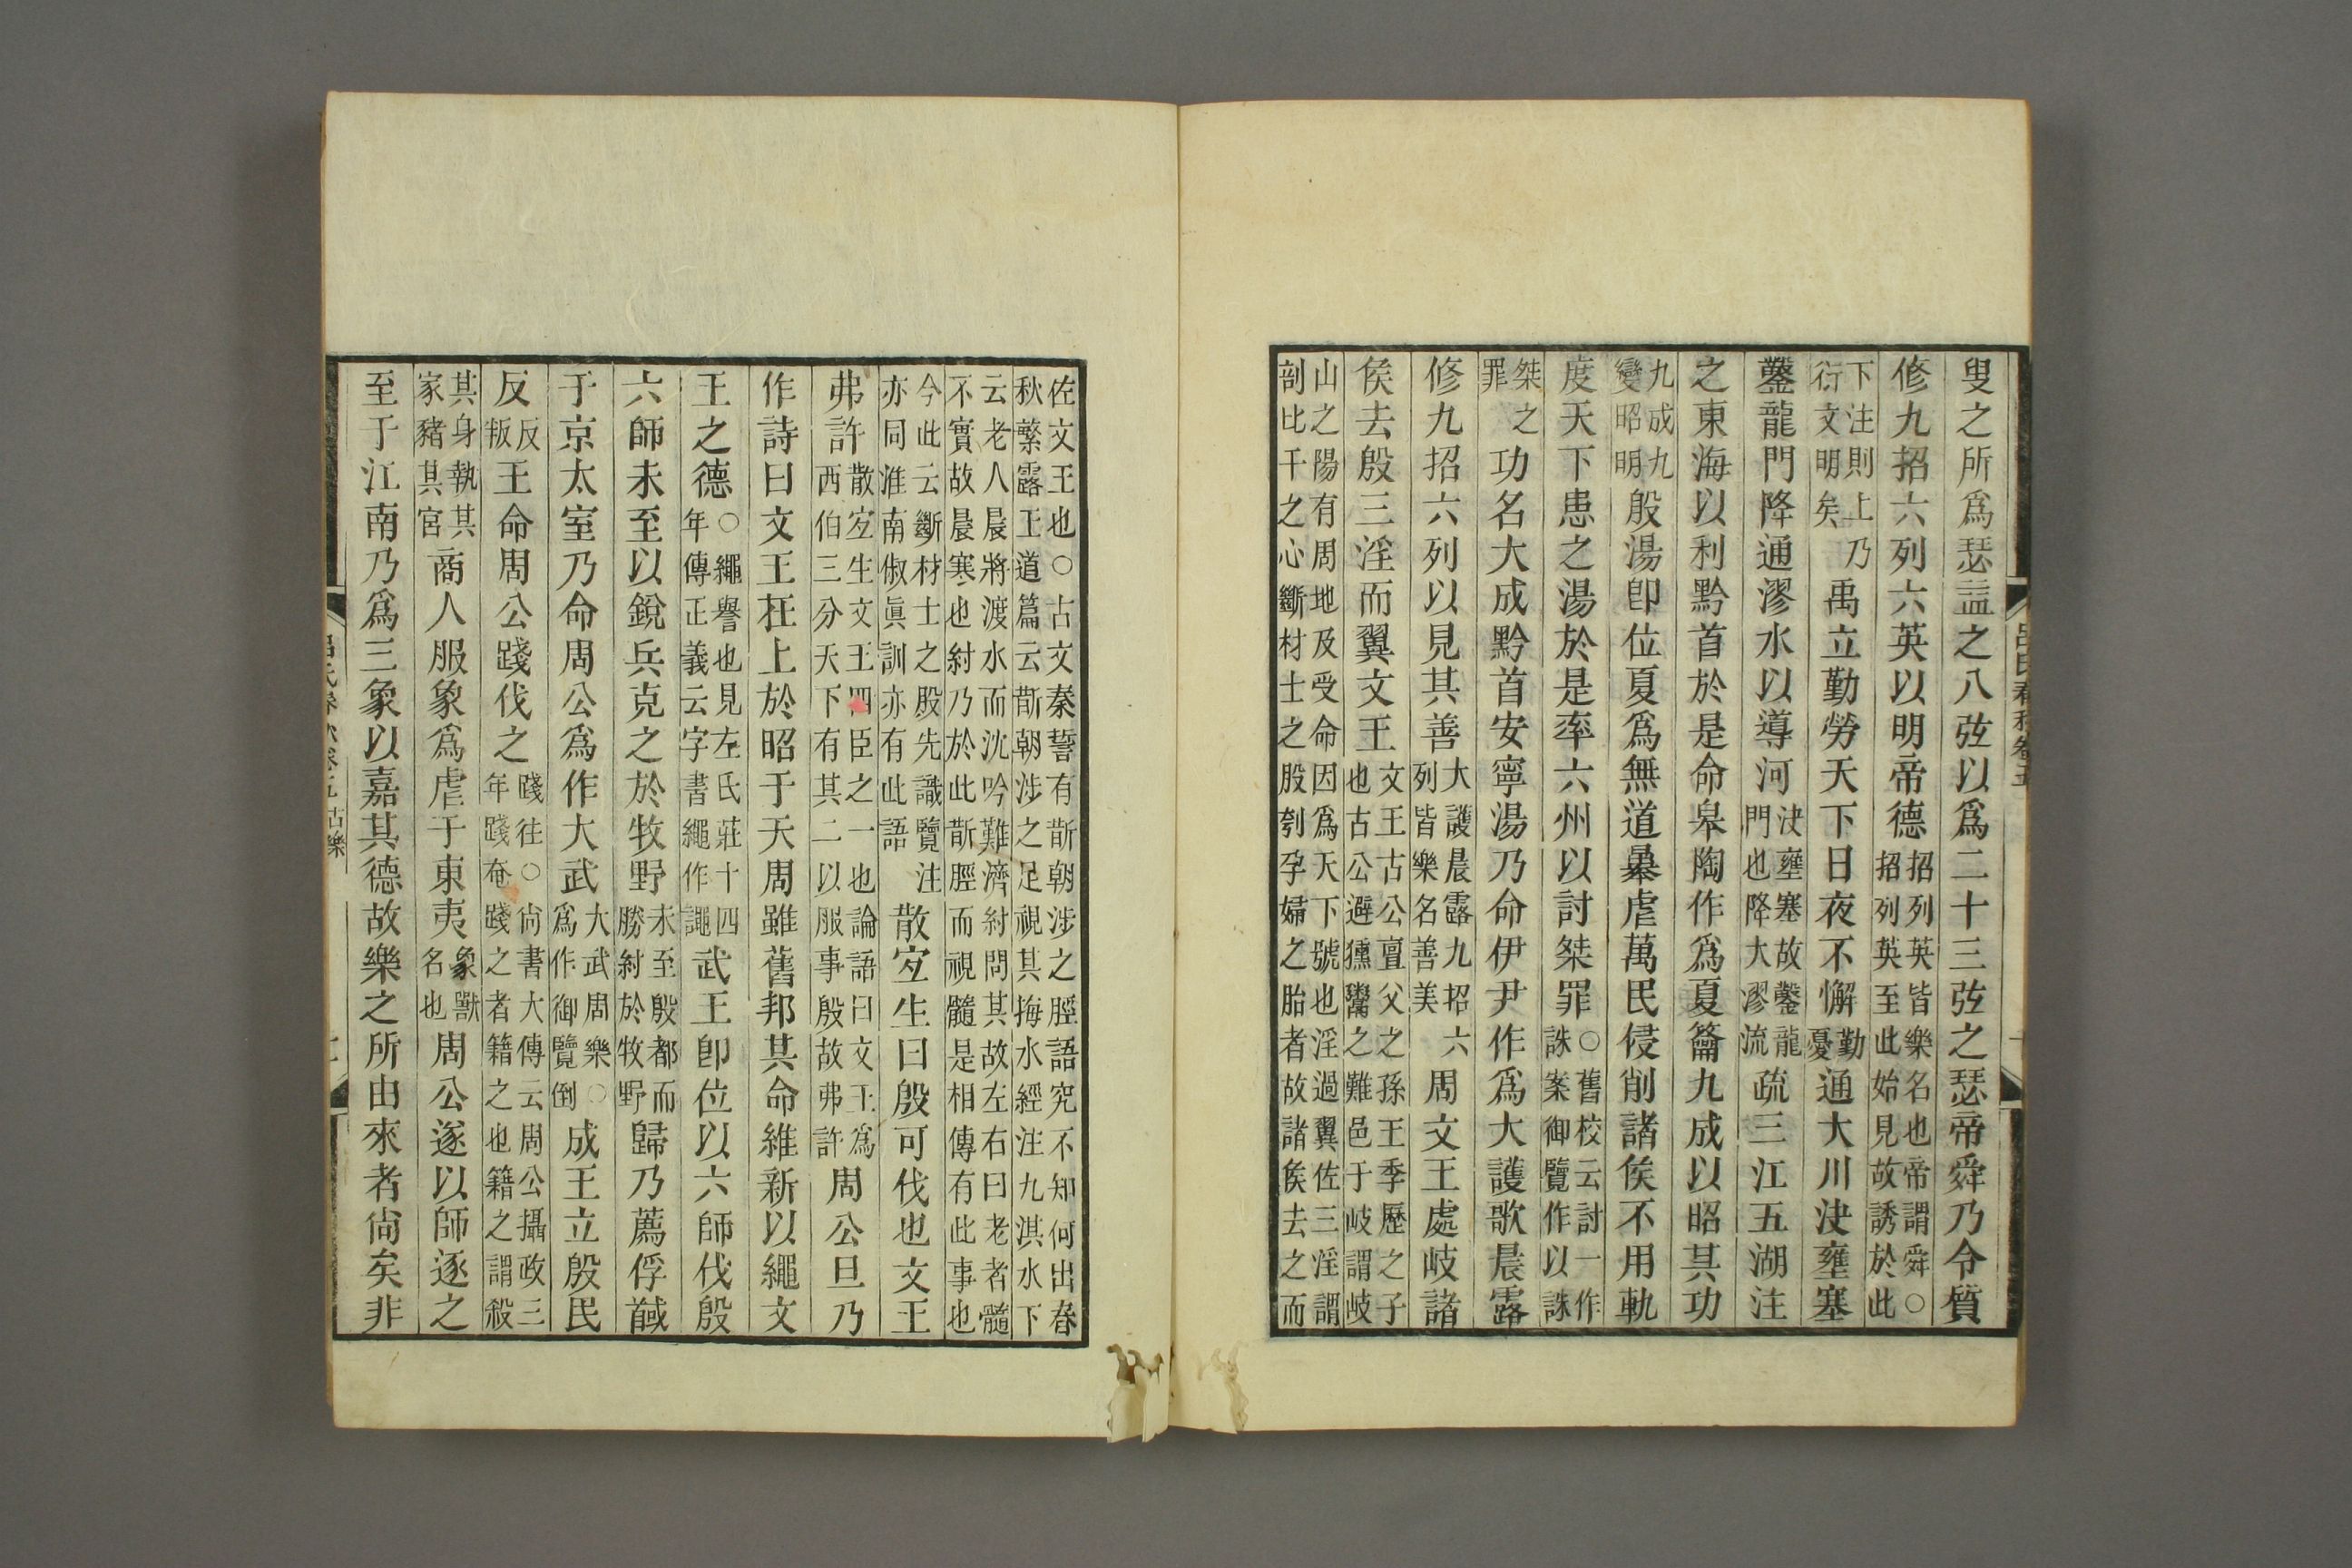 叟之所爲瑟益之八弦以爲二十三弦之瑟帝舜乃令質
修九招六列六英以明帝德招列英皆樂名也帝謂舜○招列英至此始見故誘於此
下注則上乃衍文明矣禹立勤勞天下日夜不懈勤憂通大川決壅塞
鑿龍門降通漻水以導河決壅塞故鑿龍門也降大漻流疏三江五湖注
之東海以利黔首於是命皋陶作爲夏籥九成以昭其功
九成九變昭明殷湯卽位夏爲無道暴虐萬民侵削諸侯不用軌
度天下患之湯於是率六州以討桀罪○舊校云討一作誅案御覽作以誅
桀之罪功名大成黔首安寧湯乃命伊尹作爲大護歌晨露
修九招六列以見其善大護晨露九招六列皆樂名善美周文王處岐諸
侯去殷三淫而翼文王文王古公亶父之孫王季歷之子也古公避獯鬻之難邑于岐謂岐
山之陽有周地及受命因爲天下號也淫過翼佐三淫謂剖比干之心斷材士之股刳孕婦之胎者故諸侯去之而
佐文王也○古文泰誓有斮朝涉之脛語究不知何出春秋繁露王道篇云斮朝涉之足視其拇水經注九淇水下
云老人晨將渡水而沈吟難濟紂問其故左右曰老者髓不實故晨寒也紂乃於此斮脛而視髓是相傳有此事也
今此云斷材士之股先識覽注亦同淮南俶眞訓亦有此語散宜生曰殷可伐也文王
弗許散宜生文王四臣之一也論語曰文王爲西伯三分天下有其二以服事殷故弗許周公旦乃
作詩曰文王在上於昭于天周雖舊邦其命維新以繩文
王之德○繩譽也見左氏莊十四年傳正義云字書繩作譝武王卽位以六師伐殷
六師未至以銳兵克之於牧野未至殷都而勝紂於牧野歸乃薦俘馘
于京太室乃命周公爲作大武大武周樂○爲作御覽倒成王立殷民
反反叛王命周公踐伐之踐往○尙書大傳云周公攝政三年踐奄踐之者籍之也籍之謂殺
其身執其家豬其宮商人服象爲虐于東夷象獸名也周公遂以師逐之
至于江南乃爲三象以嘉其德故樂之所由來者尙矣非
呂氏春秋卷五
呂氏春秋卷五 古樂